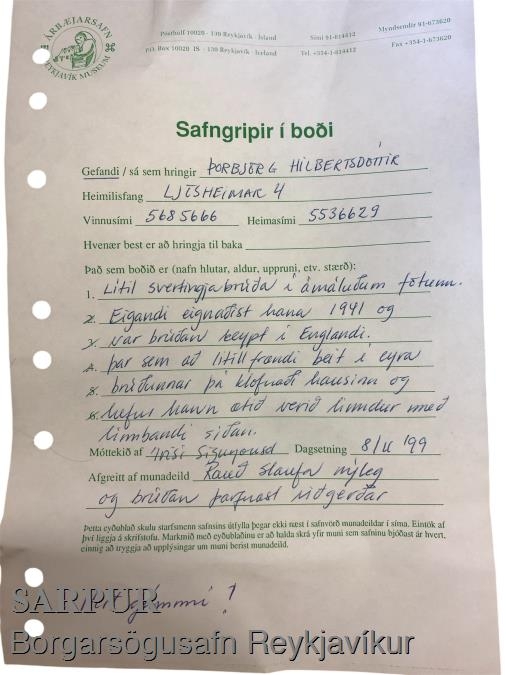 ÁRBÆJARSAFN
REYKJAVÍK MUSEUM
Pósthólf 10020 · 130 Reykjavík · Ísland Sími 91-814412 Myndsendir 91-673620
P.O. Box 10020 IS · 130 Reykjavík · Iceland Tel. +354-1-814412 Fax +354-1-673620
Safngripir í boði
Gefandi / sá sem hringir ÞORBJÖRG HILBERTSDÓTTIR
Heimilisfang LJÓSHEIMAR 4
Vinnusími 5685666 Heimasími 5536629
Hvenær best er að hringja til baka
Það sem boðið er (nafn hlutar, aldur, uppruni, etv. stærð):
1. Lítil svertingjabrúða í ámáluðum fötunm.
2. Eigandi eignaðist hana 1941 og
3. var brúðan keypt í Englandi.
4. þar sem að lítill frændi beit í eyra
5. brúðunnar þá klofnaði hausinn og
6. hefur hann ætíð verið límdur með
límbandi síðan.
Móttekið af Dagsetning 8/11 '99
Afgreitt af munadeild Rauð slaufa nýleg
og brúðan þarfnast viðgerðar
Þetta eyðublað skulu starfsmenn safnsins útfylla þegar ekki næst í safnvörð munadeildar í síma. Eintök af
því liggja á skrifstofu. Markmið með eyðublaðinu er að halda skrá yfir muni sem safninu bjóðast ár hvert,
einnig að tryggja að upplýsingar um muni berist munadeild.
SARPUR
Borgarsögusafn Reykjavíkur